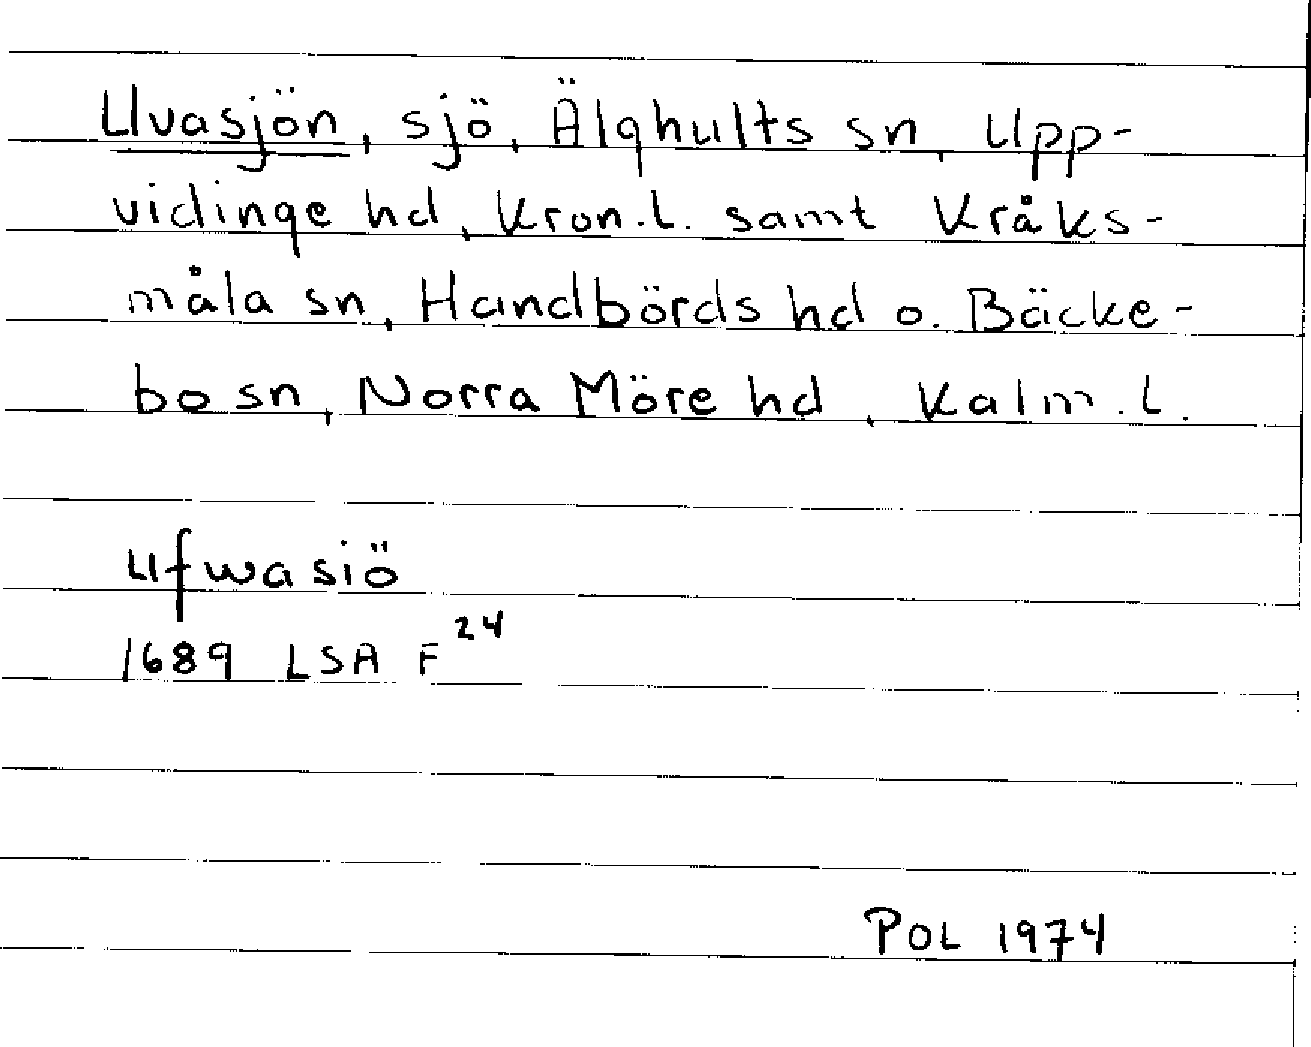 Uvasjön, sjö, Älghults sn, Upp-
vidinge hd, Kron.l. samt Kråks-
måla sn, Handbörds hd o. Bäcke-
bo sn, Norra Möre hd, Kalm.l.
Ufwasiö
1689 LSA F 24
POL 1974